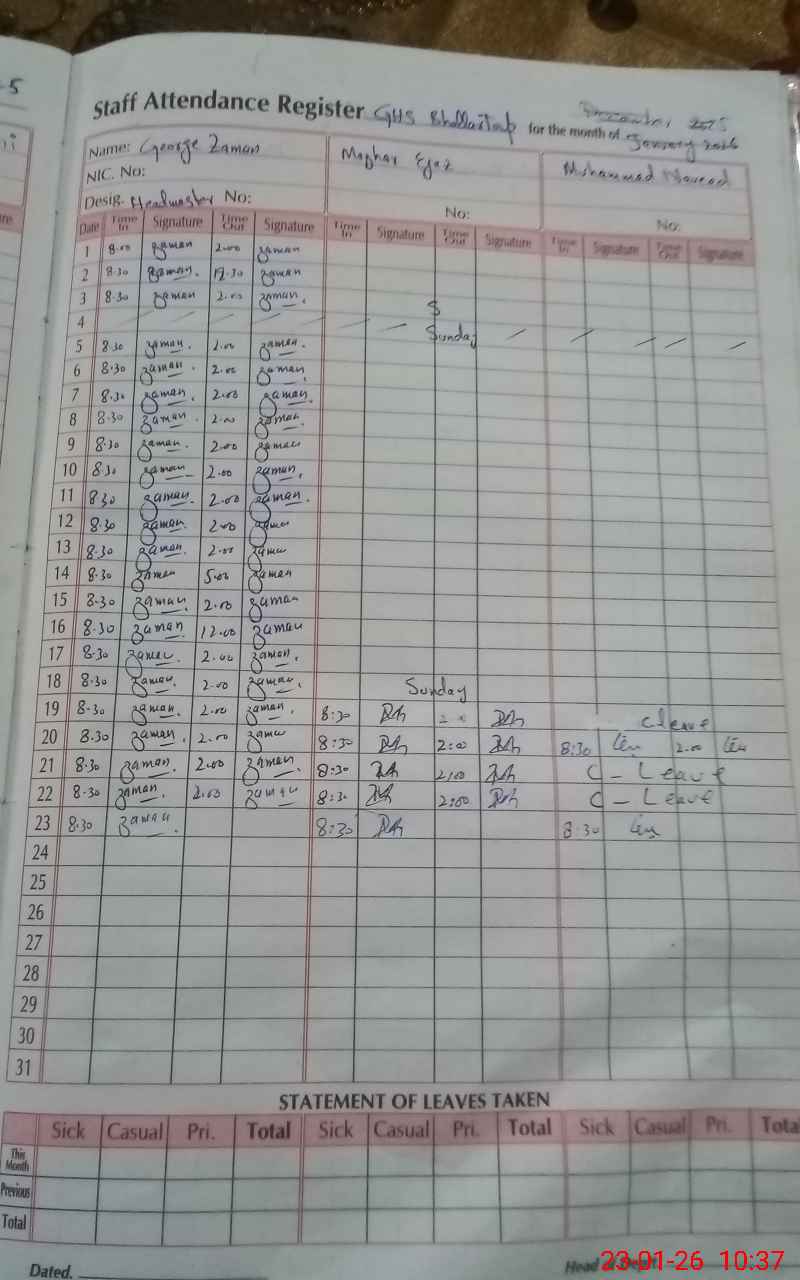 -5
Staff Attendance Register GHS for the month of December 2025 January 2026
Name: George Zaman Mazhar Ejaz Muhammad Naveed
NIC. No:
Desig. Headmaster No: No: No:
Date Time In Signature Time Out Signature Time In Signature Time Out Signature Time In Signature Time Out Signature
1 8.00 zaman 2.00 zaman
2 8.30 zaman. 12.30 zaman
3 8.30 zaman 2.00 zaman. S
4 Sunday
5 8.30 zaman. 2.00 zaman.
6 8.30 zaman. 2.00 zaman.
7 8.30 zaman. 2.00 zaman.
8 8.30 zaman. 2.00 zaman.
9 8.30 zaman. 2.00 zaman
10 8.30 zaman 2.00 zaman.
11 8.30 zaman. 2.00 zaman.
12 8.30 zaman. 2.00 zaman
13 8.30 zaman. 2.00 zaman
14 8.30 zaman 5.00 zaman
15 8.30 zaman. 2.00 zaman
16 8.30 zaman. 12.00 zaman
17 8.30 zaman. 2.00 zaman.
18 8.30 zaman. 2.00 zaman. Sunday
19 8.30 zaman. 2.00 zaman. 8:30 2:00 C leave
20 8.30 zaman. 2.00 zaman 8:30 2:00 8:30 2.00
21 8.30 zaman. 2.00 zaman. 8:30 2:00 C - Leave
22 8.30 zaman. 2.00 zaman 8:30 2:00 C - Leave
23 8.30 zaman. 8:30 8:30
24
25
26
27
28
29
30
31
STATEMENT OF LEAVES TAKEN
Sick Casual Pri. Total Sick Casual Pri. Total Sick Casual Pri. Total
This Month
Previous
Total
Dated. Head of Dept.
23-01-26 10:37